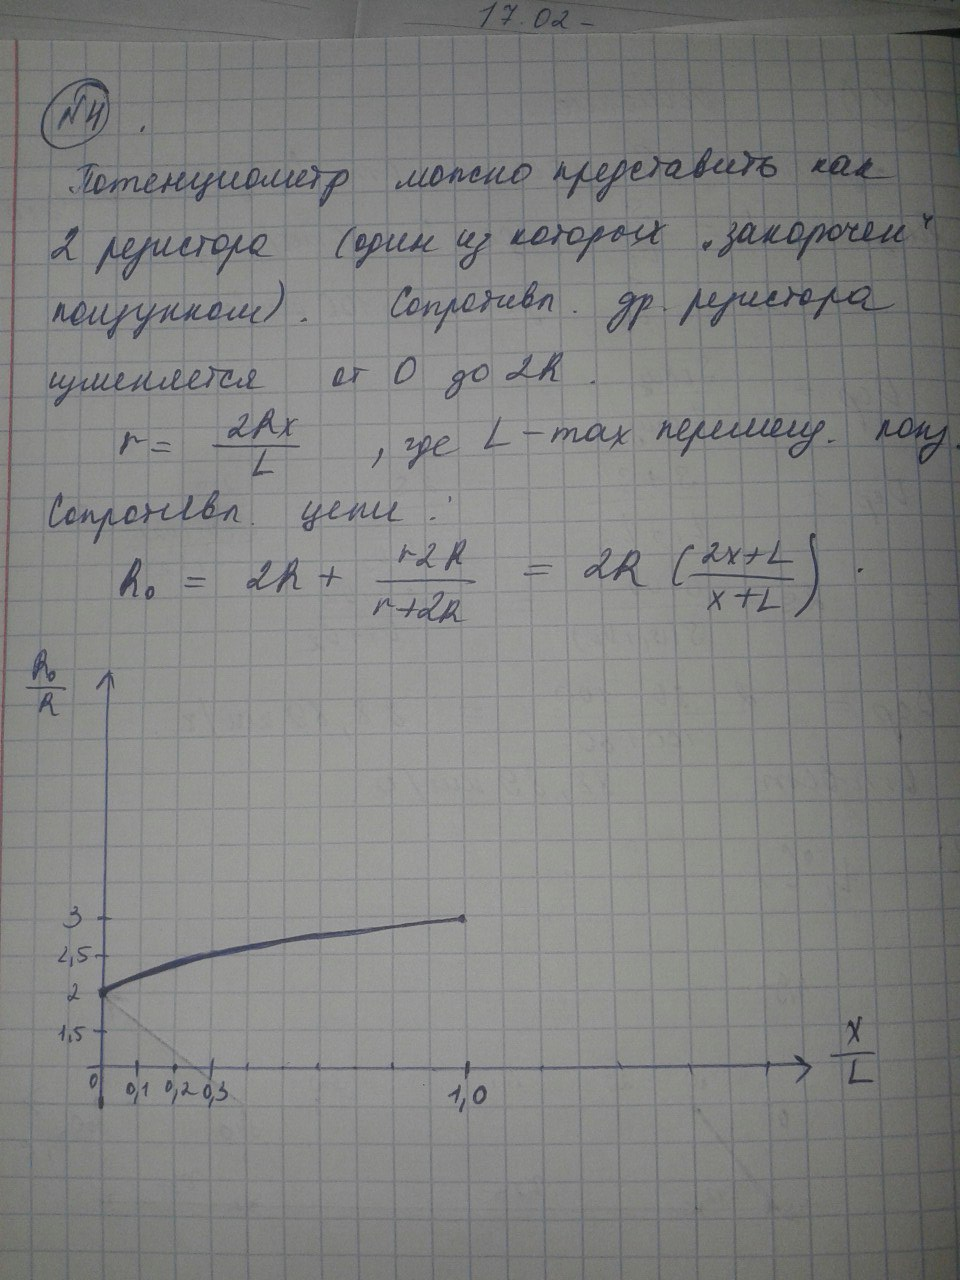 17.02-
№4.
Потенциометр можно представить как
2 резистора (один из которых „закорочен"
ползунком). Сопротивл. др. резистора
изменяется от 0 до 2R.
r = 2Rx/L, где L-max перемещ. полз.
Сопротивл. цепи:
R₀ = 2R + r2R/r+2R = 2R (2x+L/x+L).
R₀/R
3
2,5
2
1,5
0 0,1 0,2 0,3 1,0
x/L